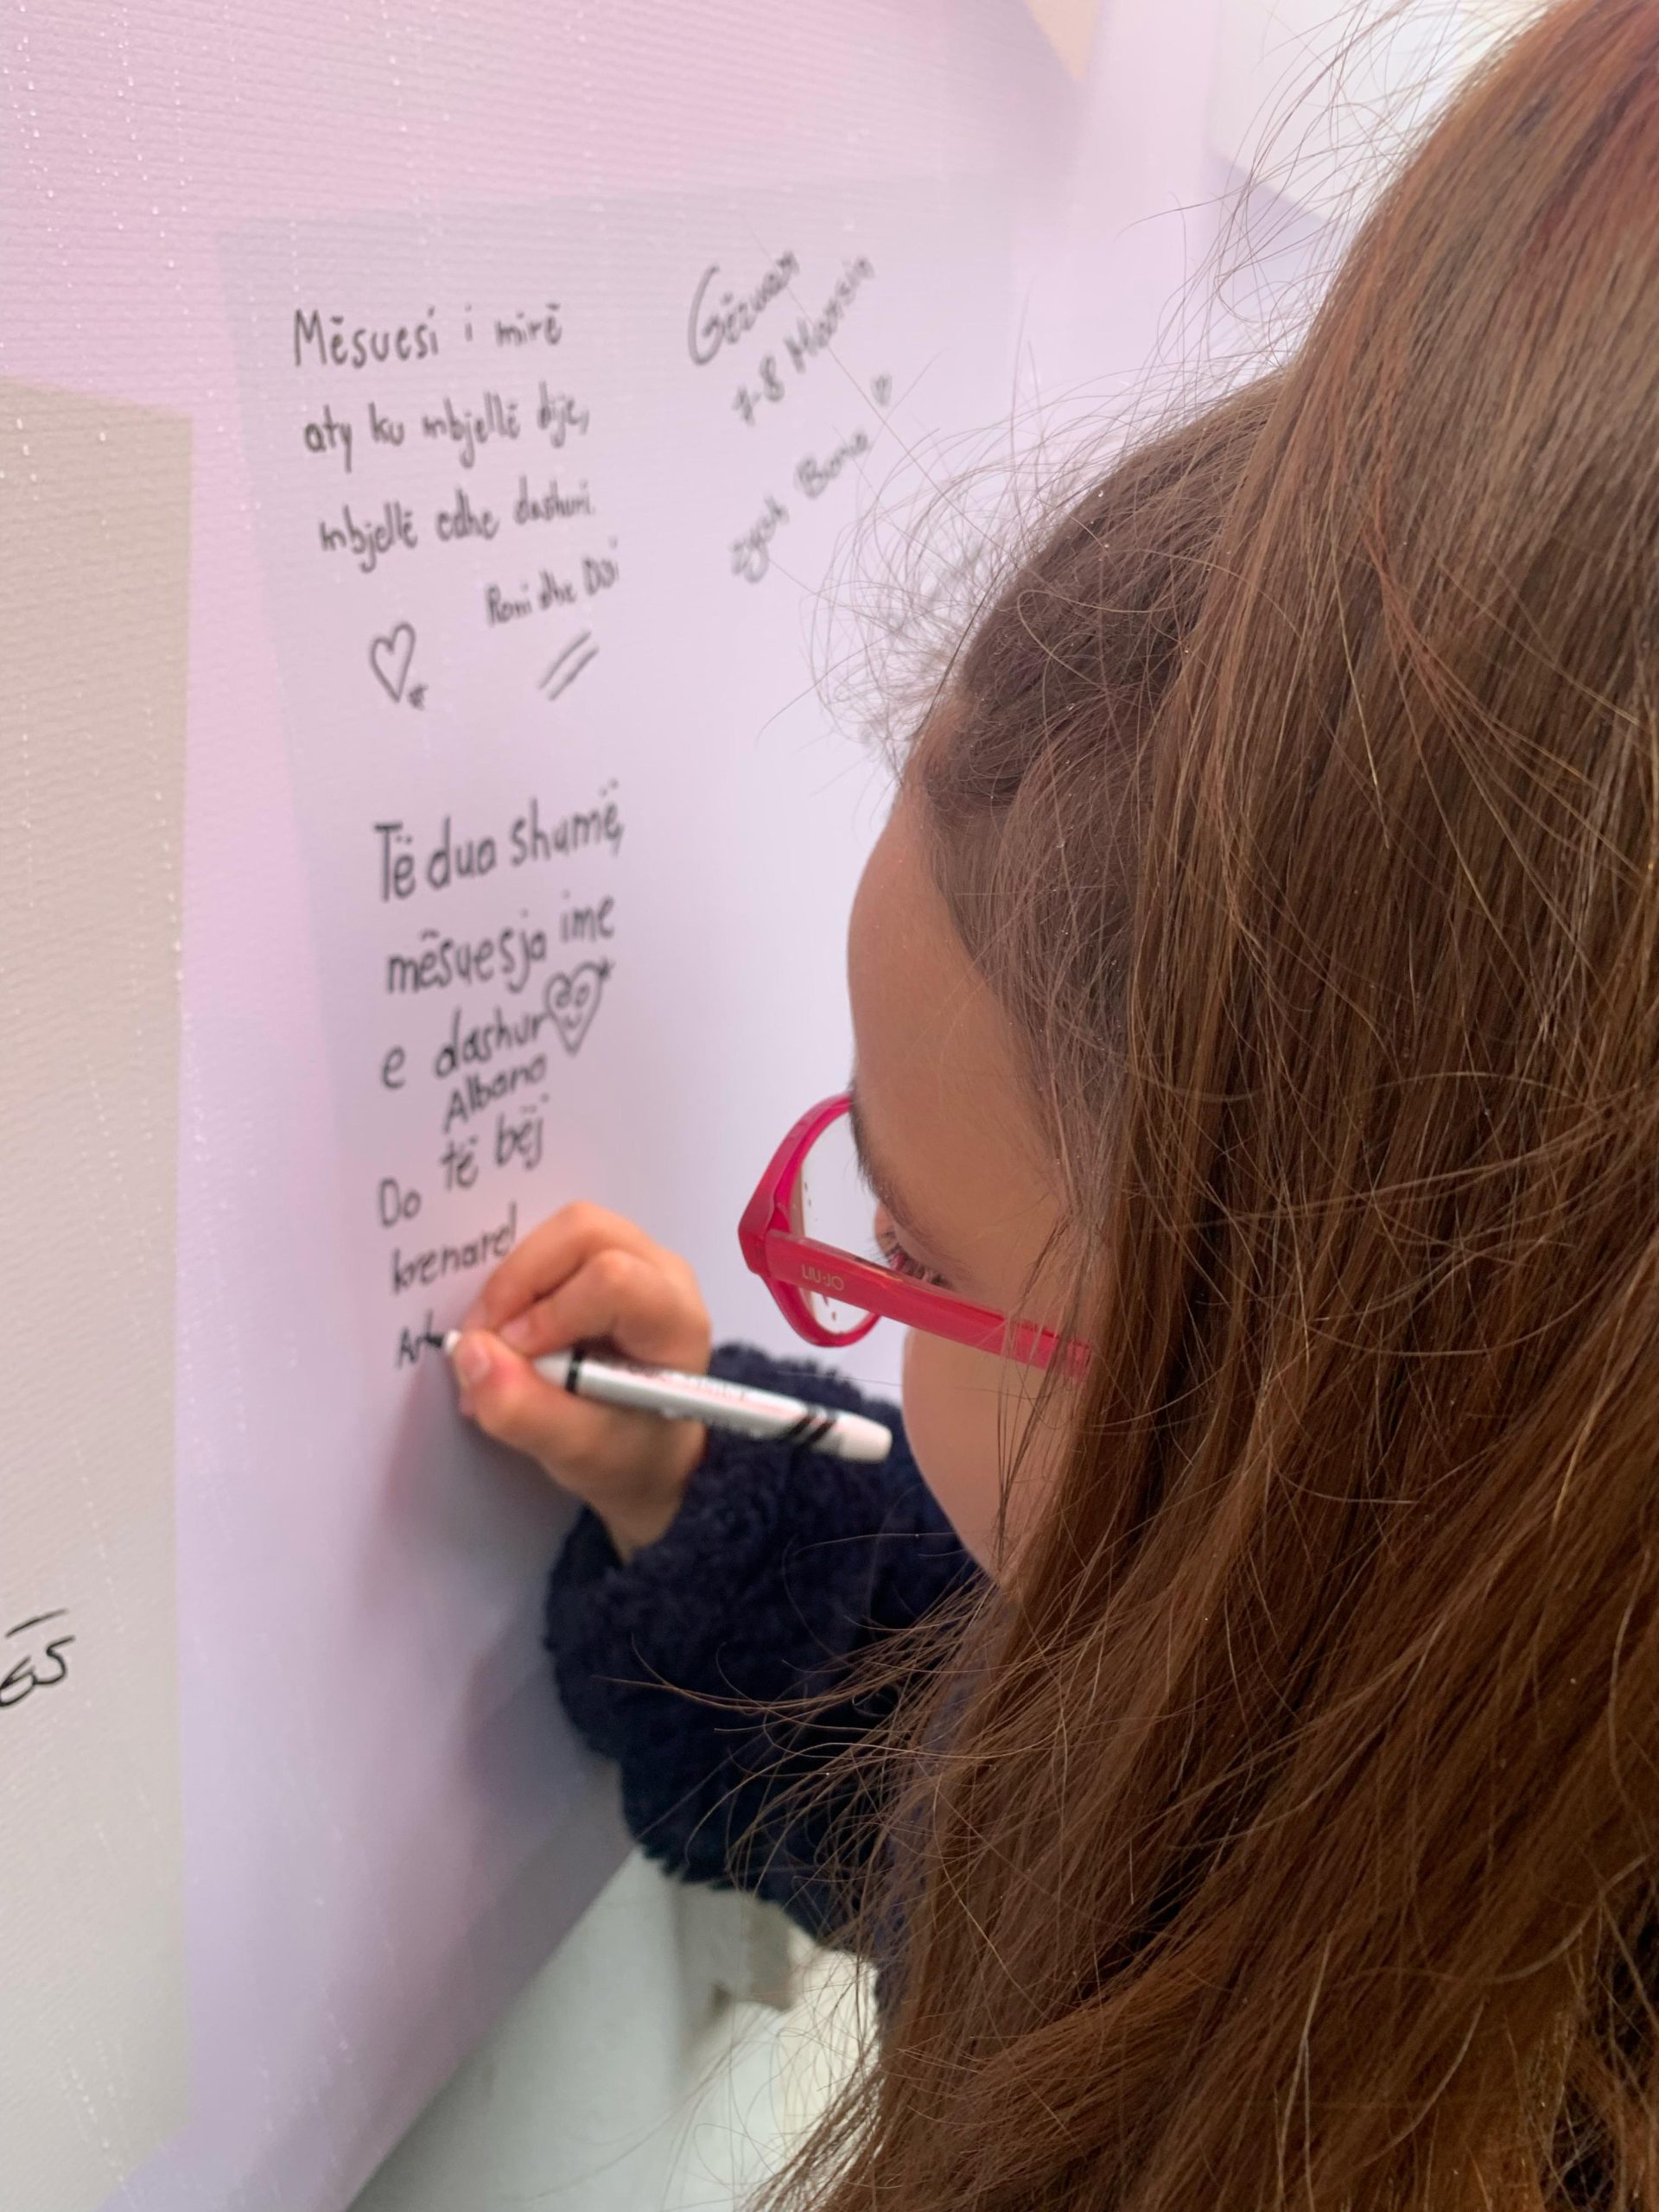 Mësuesi i mirë
aty ku mbjellë dije,
mbjellë edhe dashuri.
Roni dhe
Gëzuar
7-8 Marsin
Të dua shumë,
mësuesja ime
e dashur
Albana
Do të bëj
krenare!
LIU·JO